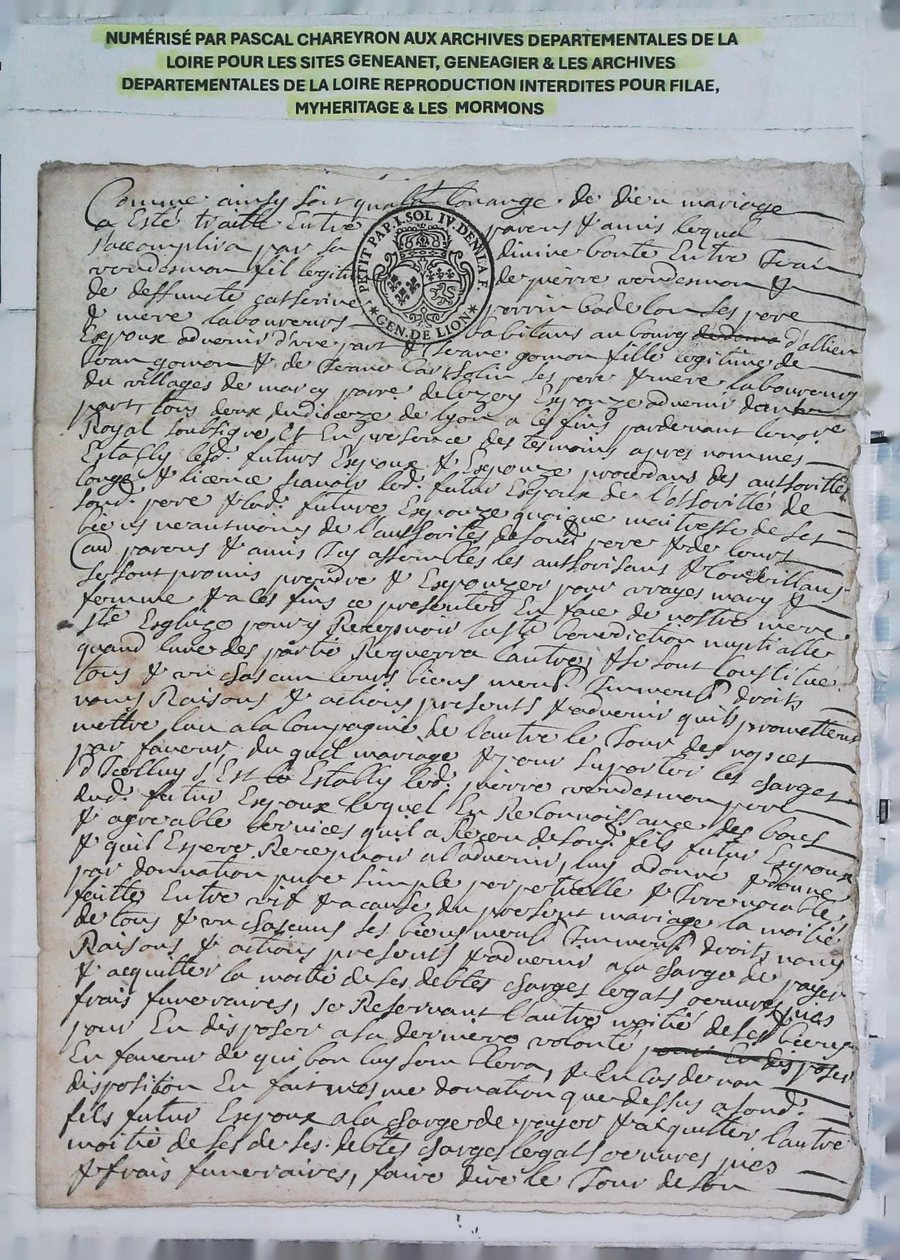 NUMÉRISÉ PAR PASCAL CHAREYRON AUX ARCHIVES DEPARTEMENTALES DE LA
LOIRE POUR LES SITES GENEANET, GENEAGIER & LES ARCHIVES
DEPARTEMENTALES DE LA LOIRE REPRODUCTION INTERDITES POUR FILAE,
MYHERITAGE & LES MORMONS
Comme ainsy soit qua la louange de dieu mariage
a Esté traitté Entre parens & amis lequel
saccomplira par sa divine bonté Entre Jean
verdesmon fil legiti de pierre verdesmon &
de deffuncte catherine perrin badelon ses pere
& mere laboureurs habitans au bourg d'allieu
Espoux advenir d'une part & Jeane gomon fille legitime de
Jean gomon & de Jeane ses pere & mere laboureurs
du villages de marcy parre deluzey Espouze advenir
part, tous deux dudiocæze de lyon a les fins pardevant lenore
Royal soubsigné Et En presence des tesmoins apres nommes
Estably lesd. futurs Espoux & Espouze procedans des authorité
conge & licence scavoir led. futur Espoux de l'othorité de
sond. pere & lad. future Espouze quoique maitresse de ses
biens neantmoins de l'authorité desond pere & de leurs
aud parens & amis Icy assemblés les authorisans & conseillans
se sont promis prendre & Espouzer pour vrayes mary &
femme & a les fins ce presenter En face de nostre mere
ste Esglize pour y Recepvoir la ste benediction nuptialle
quand lune des partie Requerra lautre, & se sont Constitué
tous & un chascun leurs biens meub. Immeub. droits
noms Raisons & actions presents & advenir quils promettent
mettre lun a la Compagnie de l'autre le Jour des nopces
par faveur du quel mariage & pour suporter les charges
d'Icelluy s'Est Estably led. pierre verdesmon pere
dud. futur Espoux lequel En Reconnoissance des bons
& agreable services quil a Receu de sond. fils futur Espoux
& quil Espere Recepvoir a ladvenir, luy a donné & donne
par donnation pure simple perpetuelle & Irrevocable
faitte Entre vif & a cause du present mariage la moitié
de tous & un chascuns ses biens meub. Immeub. droits noms
Raisons & actions presents & advenir a la charge de payer
& acquitter la moitié de ses debtes charges legats oeuvres pies
frais funeraires, se Reservant l'autre moitié de ses biens
pour En disposer a sa derniere volonté pour En disposer
En faveur de qui bon luy semblera, & En cas de non
disposition En fait mesme donation que dessus a sond.
fils futur Espoux a la charge de payer & acquitter lautre
moitié de ses de ses debtes charges legats oeuvres pies
& frais funeraires, faire dire le Jour de son
PETIT PAP. 1. SOL IV. DEN. LA F.
GEN. DE LION